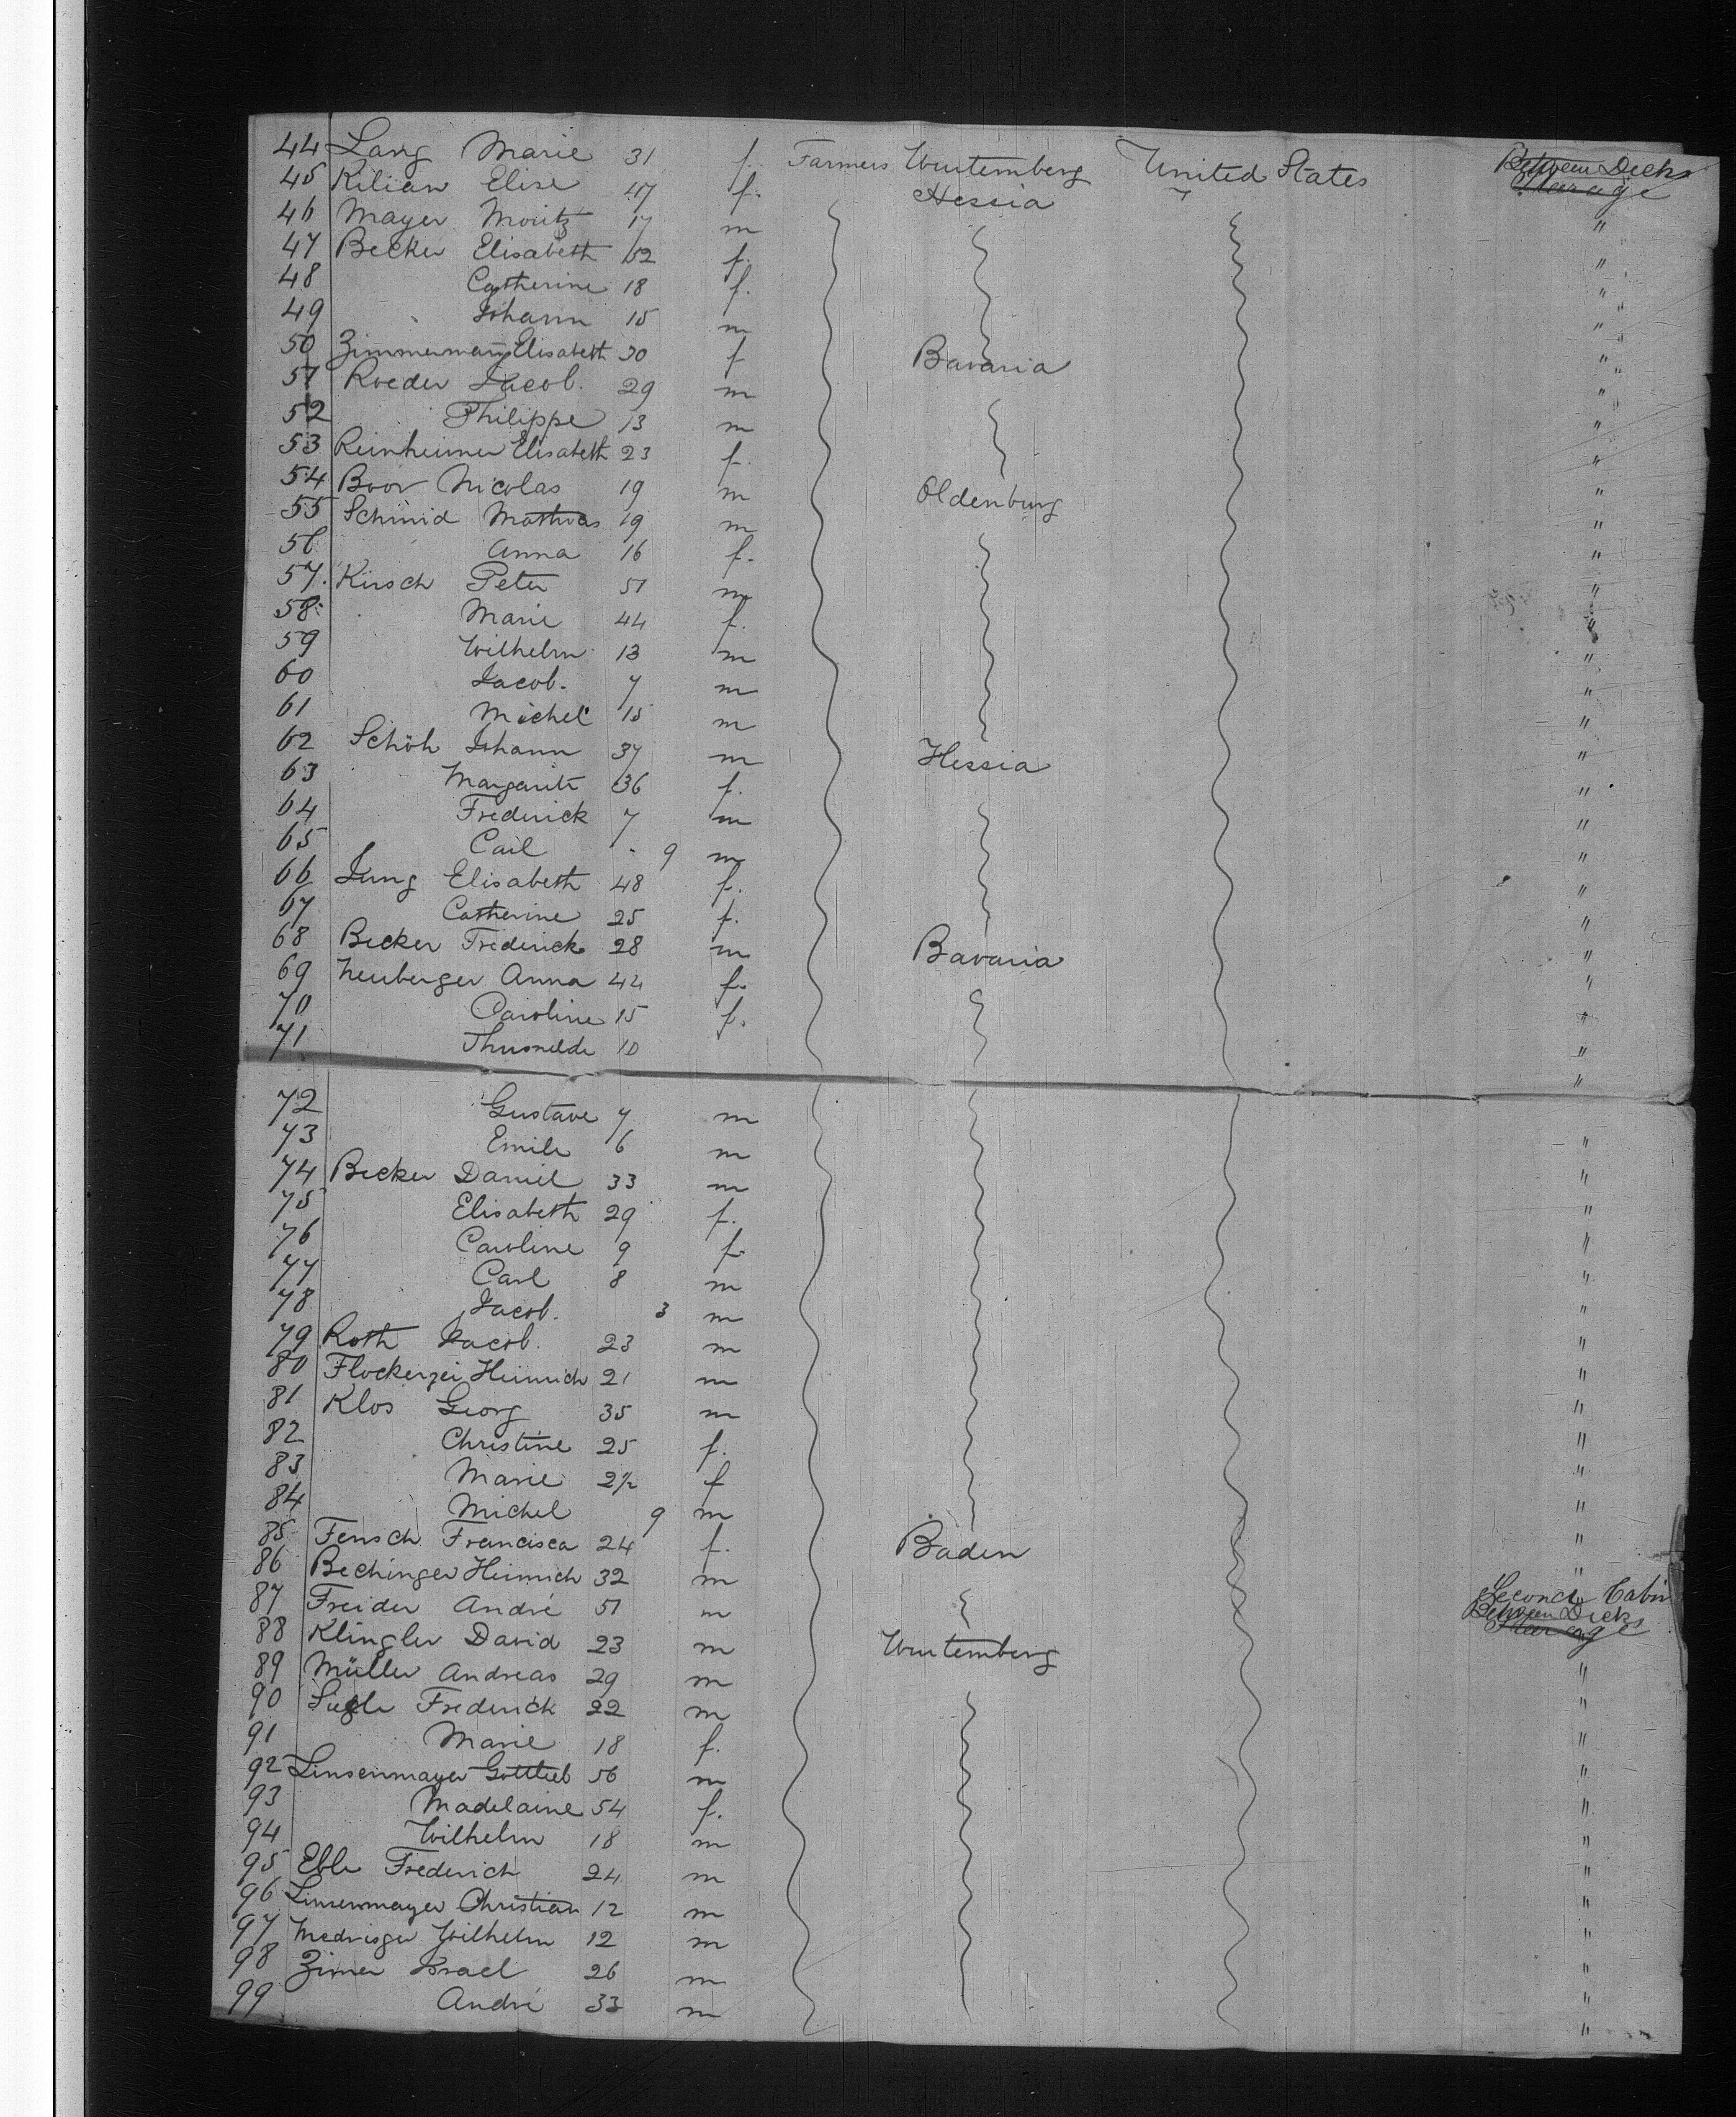 44 Lang Marie 31 f. Farmers Wurtemberg United States Between Decks Steerage
45 Kilian Elise 47 f. Hessia
46 Mayer Moritz 17 m "
47 Becker Elisabeth 52 f. "
48 Catherine 18 f. "
49 Johann 15 m "
50 Zimmermann Elisabeth 30 f Bavaria "
51 Roeder Jacob. 29 m "
52 Philippe 13 m "
53 Reinheimer Elisabeth 23 f. "
54 Boor Nicolas 19 m Oldenburg "
55 Schmid Mathias 19 m "
56 Anna 16 f. "
57. Kirsch Peter 51 m "
58. Marie 44 f. "
59 Wilhelm 13 m "
60 Jacob. 7 m "
61 Michel 15 m "
62 Schöh Johann 37 m Hessia "
63 Margarite 36 f. "
64 Frederick 7 m "
65 Carl 9 m "
66 Jung Elisabeth 48 f. "
67 Catherine 25 f. "
68 Becker Frederick 28 m Bavaria "
69 Neuberger Anna 44 f. "
70 Caroline 15 f. "
71 Thusnelde 10 "
72 Gustave 7 m "
73 Emile 6 m "
74 Becker Daniel 33 m "
75 Elisabeth 29 f. "
76 Caroline 9 f. "
77 Carl 8 m "
78 Jacob. 3 m "
79 Roth Jacob. 23 m "
80 Flockerzei Heinrich 21 m "
81 Klos Georg 35 m "
82 Christine 25 f. "
83 Marie 2½ f "
84 Michel 9 m "
85 Fensch Francisca 24 f. Baden "
86 Bechinger Heinrich 32 m Second Cabin
87 Freider André 51 m Between Decks Steerage
88 Klingler David 23 m Wurtemberg
89 Müller Andreas 29 m "
90 Siegle Frederick 22 m "
91 Marie 18 f. "
92 Linsenmayer Gottlieb 56 m "
93 Madelaine 54 f. "
94 Wilhelm 18 m "
95 Eble Frederich 24 m "
96 Linsenmayer Christian 12 m "
97 Wilhelm 12 m "
98 Zimer Israel 26 m "
99 André 33 m "